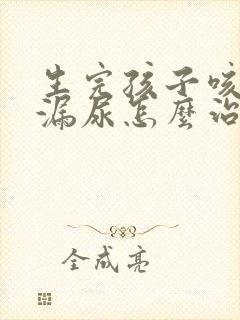 生完孩子咳
漏尿怎麼治
全成亮